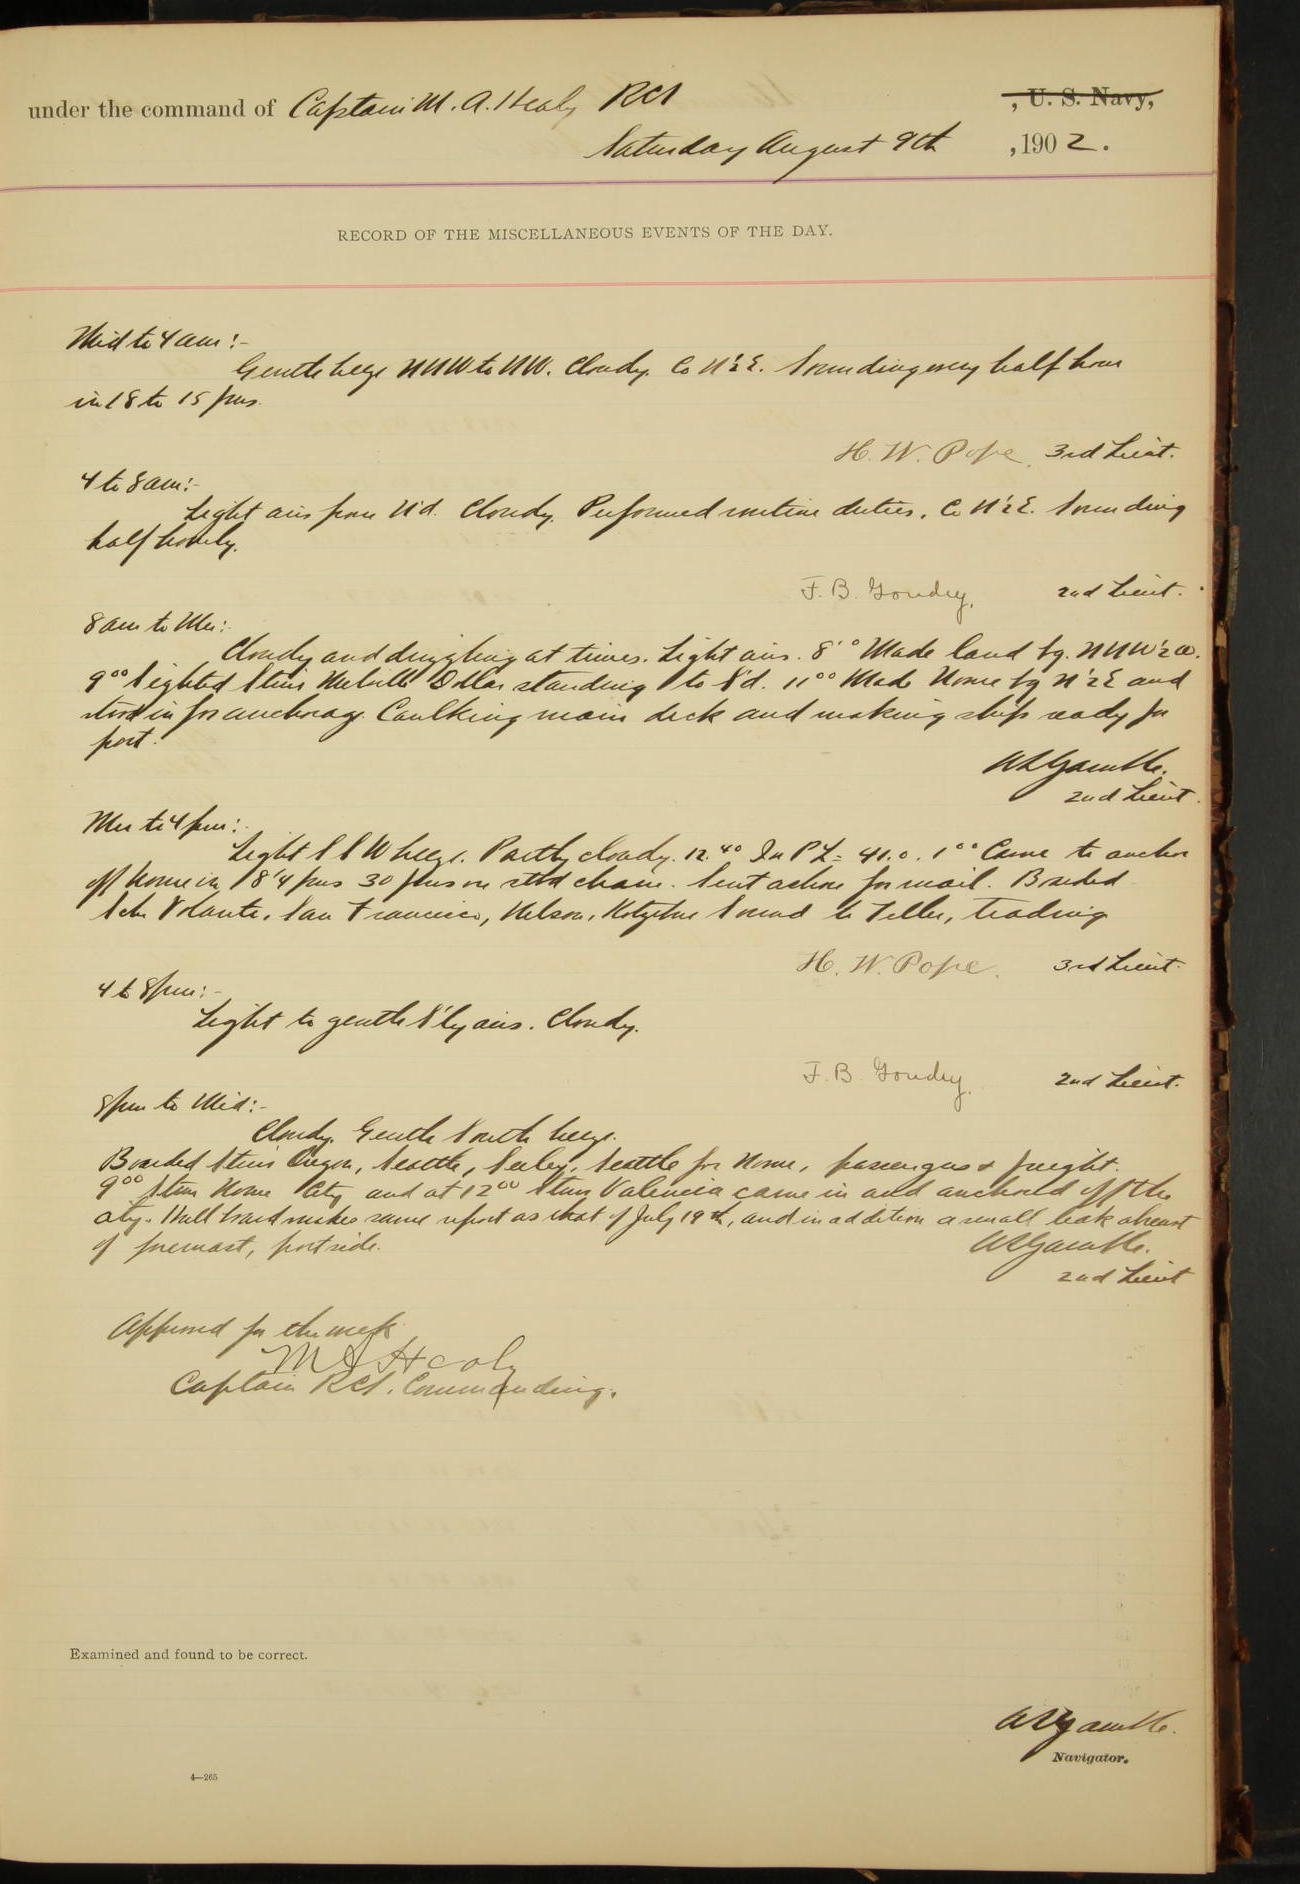 under the command of Captain M. A. Healy RCS , U. S. Navy,
Saturday August 9th , 1902.
RECORD OF THE MISCELLANEOUS EVENTS OF THE DAY.
Mid to 4 am:-
Gentle breeze NNW to NW. Cloudy. Co N'½E. Sounding every half hour
in 18 to 15 fms.
H. W. Pope. 3rd Lieut.
4 to 8 am:-
Light airs from N'd. Cloudy. Performed routine duties. Co N'½E. Sounding
half hourly.
F. B. Goudey. 2nd Lieut.
8 am to Mer:-
Cloudy and drizzling at times. Light airs. 8 Made land bg. NNW½W.
9⁰⁰ Sighted Stmr Melville Dollar standing to S'd. 11⁰⁰ Made Nome bg N'½E and
stood in for anchorage. Caulking main deck and making ship ready for
port.
W. Gamble.
2nd Lieut.
Mer to 4 pm:-
Light SSW breeze. Partly cloudy. 12.⁴⁰ In P L = 41.0. 1⁰⁰ Came to anchor
off Nome in 8¼ fms 30 fms on stbd chain. Sent ashore for mail. Boarded
Sch Volante, San Francisco, Nelson, Kotzebue Sound to Teller, trading
H. W. Pope. 3rd Lieut.
4 to 8 pm:-
Light to gentle S'ly airs. Cloudy.
F. B. Goudey. 2nd Lieut.
8 pm to Mid:-
Cloudy. Gentle South breeze.
Boarded Stmr Oregon, Seattle, Seeley, Seattle for Nome, passengers & freight.
9⁰⁰ Stmr Nome City and at 12⁰⁰ Stmr Valencia came in and anchored off the
city. Hull board makes same report as that of July 19th, and in addition a small leak abreast
of foremast, port side.
W. Gamble.
2nd Lieut
Approved for the week
M A Healy
Captain RCS. Commanding.
Examined and found to be correct.
W. Gamble.
Navigator.
4—265